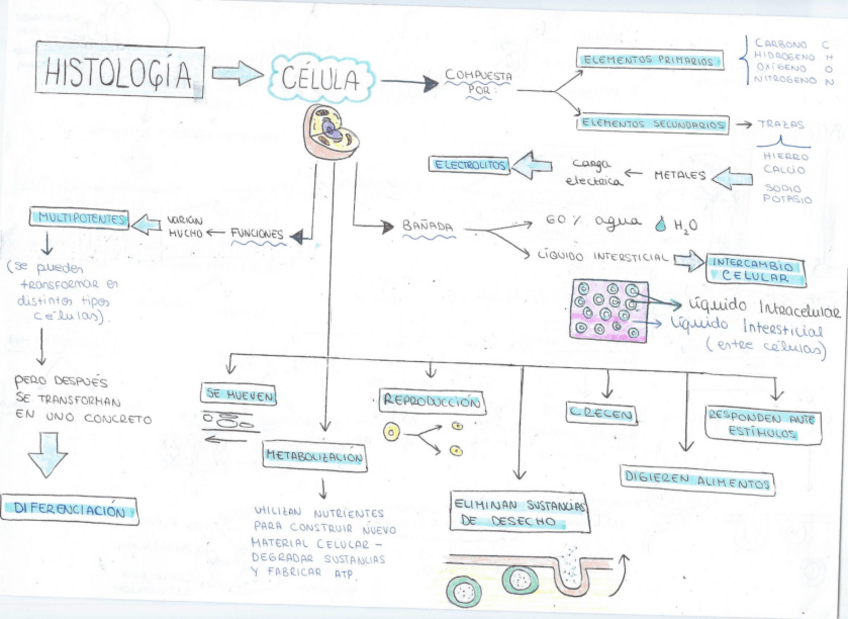 HISTOLOGÍA
CÉLULA
COMPUESTA
POR:
ELEMENTOS PRIMARIOS
CARBONO C
HIDROGENO H
OXÍGENO O
NITROGENO N
ELEMENTOS SECUNDARIOS
TRAZAS
HIERRO
CALCIO
SODIO
POTASIO
METALES
carga
electrica
ELECTROLITOS
BAÑADA
60 % agua H₂O
LÍQUIDO INTERSTICIAL
INTERCAMBIO
CELULAR
Líquido Intracelular
Líquido Intersticial
(entre células)
FUNCIONES
VARÍAN
MUCHO
MULTIPOTENTES
(se pueden
transformar en
distintos tipos
células).
PERO DESPUÉS
SE TRANSFORMAN
EN UNO CONCRETO
DIFERENCIACIÓN
SE MUEVEN
METABOLIZACIÓN
UTILIZAN NUTRIENTES
PARA CONSTRUIR NUEVO
MATERIAL CELULAR –
DEGRADAR SUSTANCIAS
Y FABRICAR ATP.
REPRODUCCIÓN
ELIMINAN SUSTANCIAS
DE DESECHO
CRECEN
DIGIEREN ALIMENTOS
RESPONDEN ANTE
ESTÍMULOS